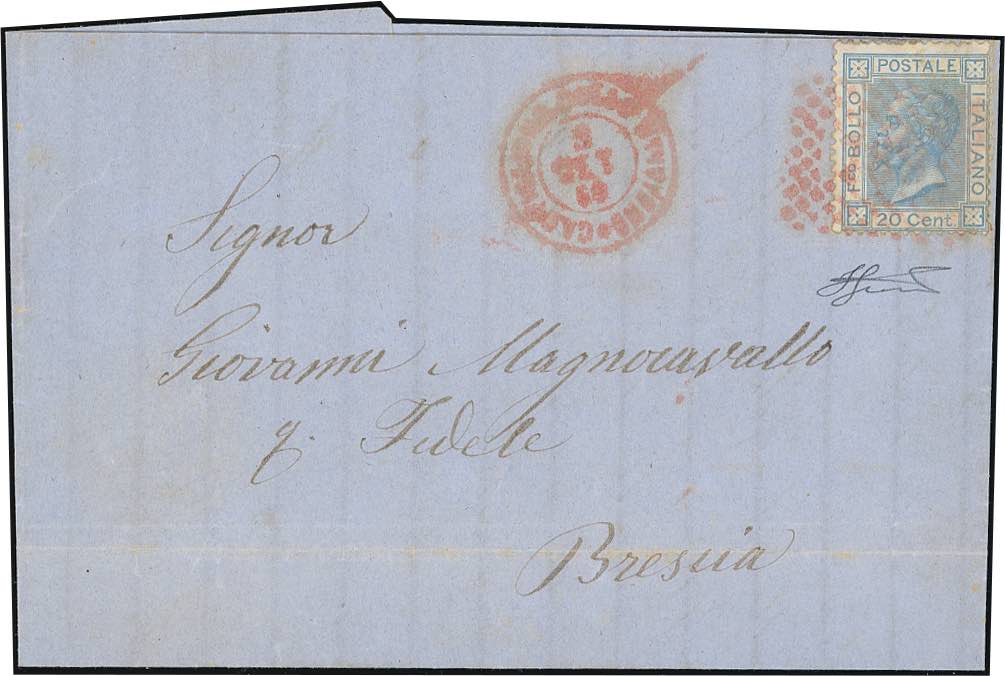 POSTALE
Fco BOLLO
ITALIANO
20 Cent.
Signor
Giovanni Magnocavallo
q. Fedele
Brescia